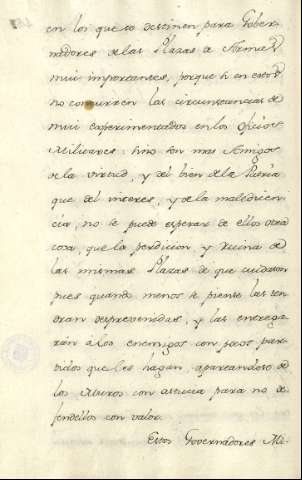 en los que se destinen para Gover-
nadores de las Plazas de Armas
mui importantes, porque si en estos
no concurren las circunstancias de
mui experimentados en los oficios
Militares: sino son mas Amigos
de la virtud, y del bien de la Patria
que del interes, y de la maledicen-
cia, no se puede esperar de ellos otra
cosa, que la perdicion, y ruina de
las mismas Plazas de que cuidaron
pues quando menos se piense las ten-
dran desprevenidas, y las entrega-
rán á los enemigos con pocos par-
tidos que les hagan, apartandose de
los Muros con astucia para no de-
fendellos con valor.
Estos Governadores Mi-